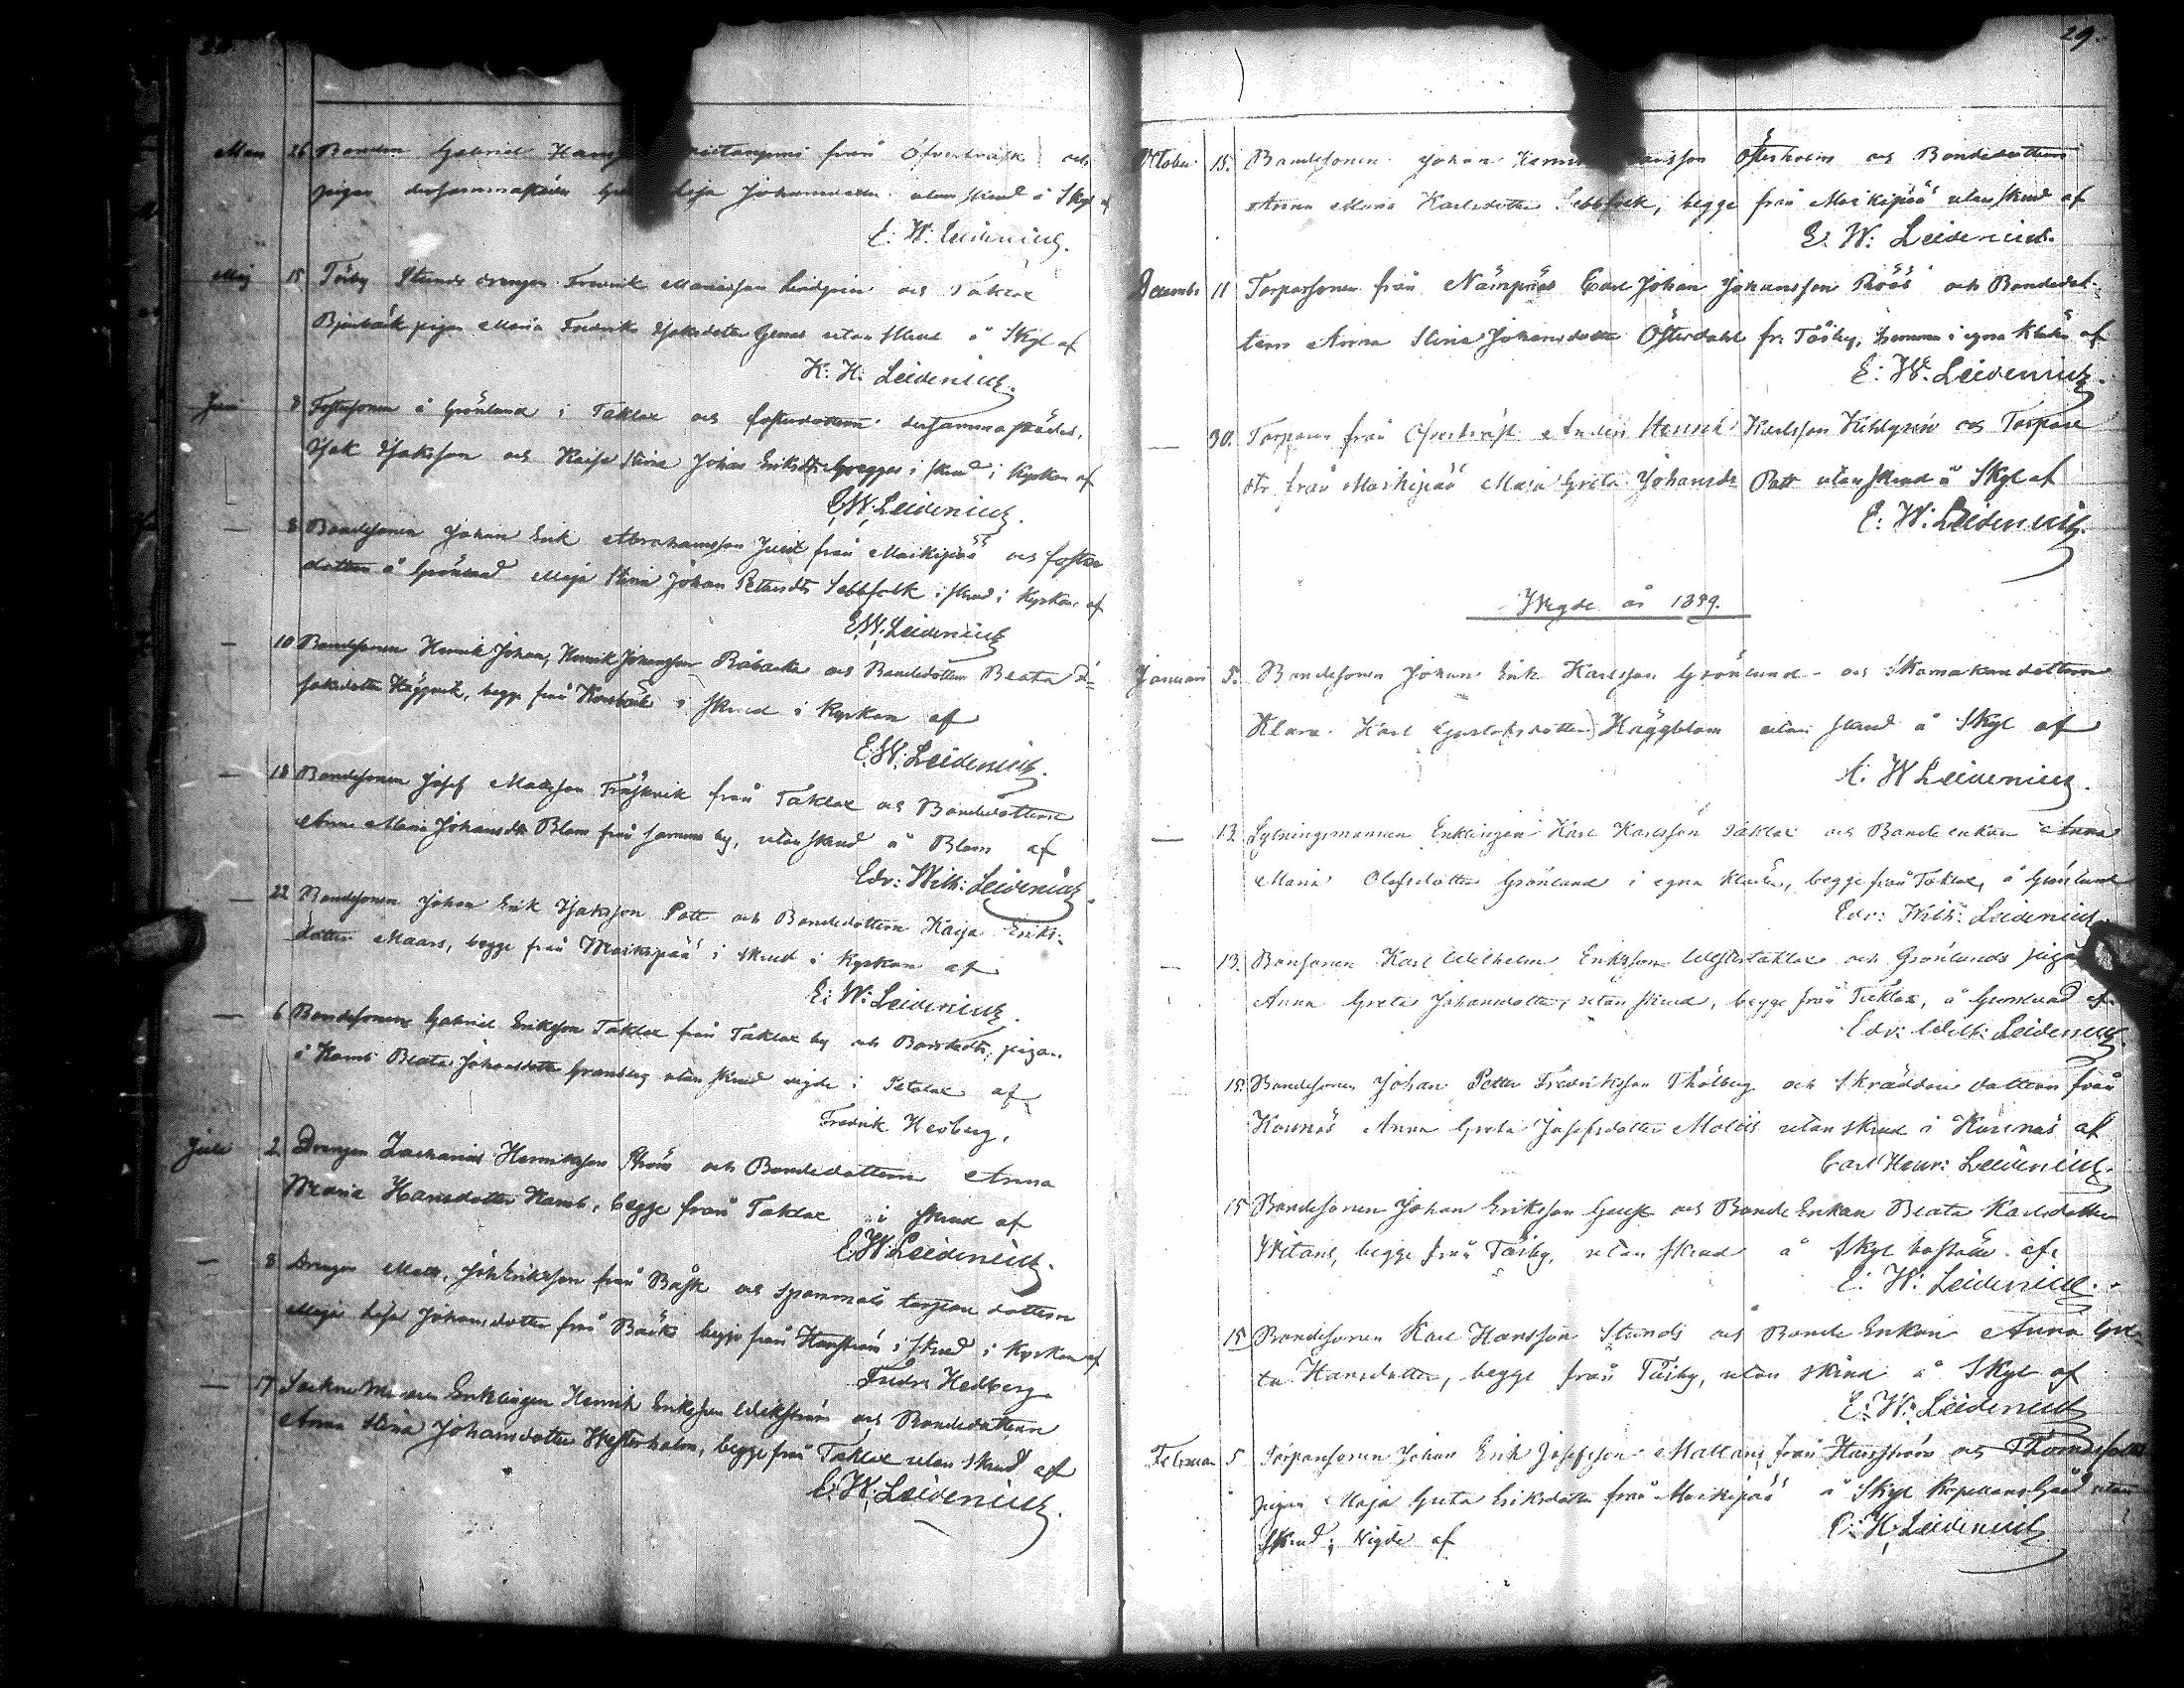 29.
Mars 26 Bonden Gabriel från Öfverträsk och
pigan dersammastädes Johansdotter utan skrud å Skyl af
E: W: Leidenius.
Maj 15 Töjby Stunds drengen Fredrik Lindgren och Taklax
Björkbäck pigan Maria Fredrika utan skrud å Skyl af
K: H: Leidenius.
Juni 8 Fostersonen å Grönlund i Taklax och fosterdottern dersammastädes,
Isak Isaksson och Kaisa Stina Johan Eriksdtr i skrud i Kyrkan af
E: W: Leidenius.
— 8 Bondesonen Johan Erik Abrahamsson från Moikipää och foster
dottern å Grönlund Maja Stina Johan Petersdtr Sebbfolk i skrud i Kyrkan af
E: W: Leidenius
— 10 Bondesonen Henrik Johan, Henrik Johansson Råbacka och Bondedottern Beata I-
saksdotter Häggqvist, begge från Korsbäck i skrud i Kyrkan af
E: W: Leidenius.
— 18 Bondesonen Josef Mattsson Träskvik från Taklax och Bondedottern
Anna Maria Johansdtr Blom från samma by, utan skrud å Blom af
Edv: Wilh: Leidenius
— 22 Bondesonen Johan Erik Isaksson Patt och Bondedottern Kaisa Eriks-
dotter Maars, begge från Moikipää i skrud i Kyrkan af
E: W: Leidenius.
— 6 Bondesonen Gabriel Eriksson Taklax från Taklax by och pigan
å Kamb Beata Johansdotter Granberg utan skrud vigde i Petalax af
Fredrik Hedberg.
Juli 2 Drengen Zacharias Henriksson och Bondedottern Anna
Maria Hansdotter Kamb, begge från Taklax i skrud af
E: W: Leidenius.
— 8 Drengen Matts, Joh Eriksson från Båsk och dottern
Maja Lisa Johansdotter från Bäck begge från Harrström i skrud i Kyrkan af
Fredr: Hedberg
— 17 Enklingen Henrik Eriksson Wikström och Bondedottern
Anna Stina Johansdotter Westerholm, begge från Taklax utan skrud af
E: W: Leidenius.
Oktober 15. Bondesonen Johan Österholm och Bondedottern
Anna Maria Karlsdotter Sebbfolk, begge från Moikipää utan skrud af
E: W: Leidenius.
December 11 Torparsonen från Nämpnäs Carl Johan Johansson Röös och Bondedot-
tern Anna Stina Johansdotter Österdahl fr: Töjby, hemma i egna kläder af
E: W: Leidenius.
— 30. Torparen från Öfverträsk Anders Henrik Karlsson och Torpare
dtr från Moikipää Maja Greta Johansdr Patt utan skrud å Skyl af
E: W: Leidenius.
Wigde år 1899.
Januari 5. Bondesonen Johan Erik Karlsson Grönlund och Skomakaredottern
Klara Karl Gustafsdotter Häggblom utan skrud å Skyl af
E: W Leidenius.
— 13 Sytningsmannen Enklingen Karl Karlsson Taklax och Bonde enkan Anna
Maria Olofsdotter Grönlund i egna kläder, begge från Taklax, å Grönlund
Edv: Wilh: Leidenius.
— 13. Bondsonen Karl Wilhelm Eriksson Westertaklax och Grönlunds pigan
Anna Greta Johansdotter, utan skrud, begge från Taklax, å Grönlund af
Edv: Wilh: Leidenius.
15. Bondesonen Johan Petter Fredriksson Thölberg och Skräddare dottern från
Korsnäs Anna Greta Josefsdotter Molits utan skrud i Korsnäs af
Carl Henr: Leidenius.
15 Bondesonen Johan Eriksson och Bonde Enkan Beata Karlsdotter
Witans, begge från Töjby, utan skrud å Skyl boställe af
E: W: Leidenius.
15 Bondesonen Karl Hansson Stunds och Bonde Enkan Anna Gre-
ta Hansdotter, begge från Töjby, utan skrud å Skyl af
E: W: Leidenius
Februari 5 Torparsonen Johan Erik Josefsson Mattans från Harrström och
pigan Maja Greta Eriksdotter från Moikipää å Skyl Kapellans Gård utan
skrud, vigde af
E: W: Leidenius